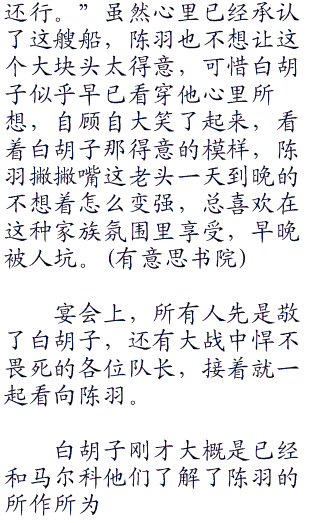 还行。”虽然心里已经承认
了这艘船，陈羽也不想让这
个大块头太得意，可惜白胡
子似乎早已看穿他心里所
想，自顾自大笑了起来，看
着白胡子那得意的模样，陈
羽撇撇嘴这老头一天到晚的
不想着怎么变强，总喜欢在
这种家族氛围里享受，早晚
被人坑。(有意思书院)
宴会上，所有人先是敬
了白胡子，还有大战中悍不
畏死的各位队长，接着就一
起看向陈羽。
白胡子刚才大概是已经
和马尔科他们了解了陈羽的
所作所为